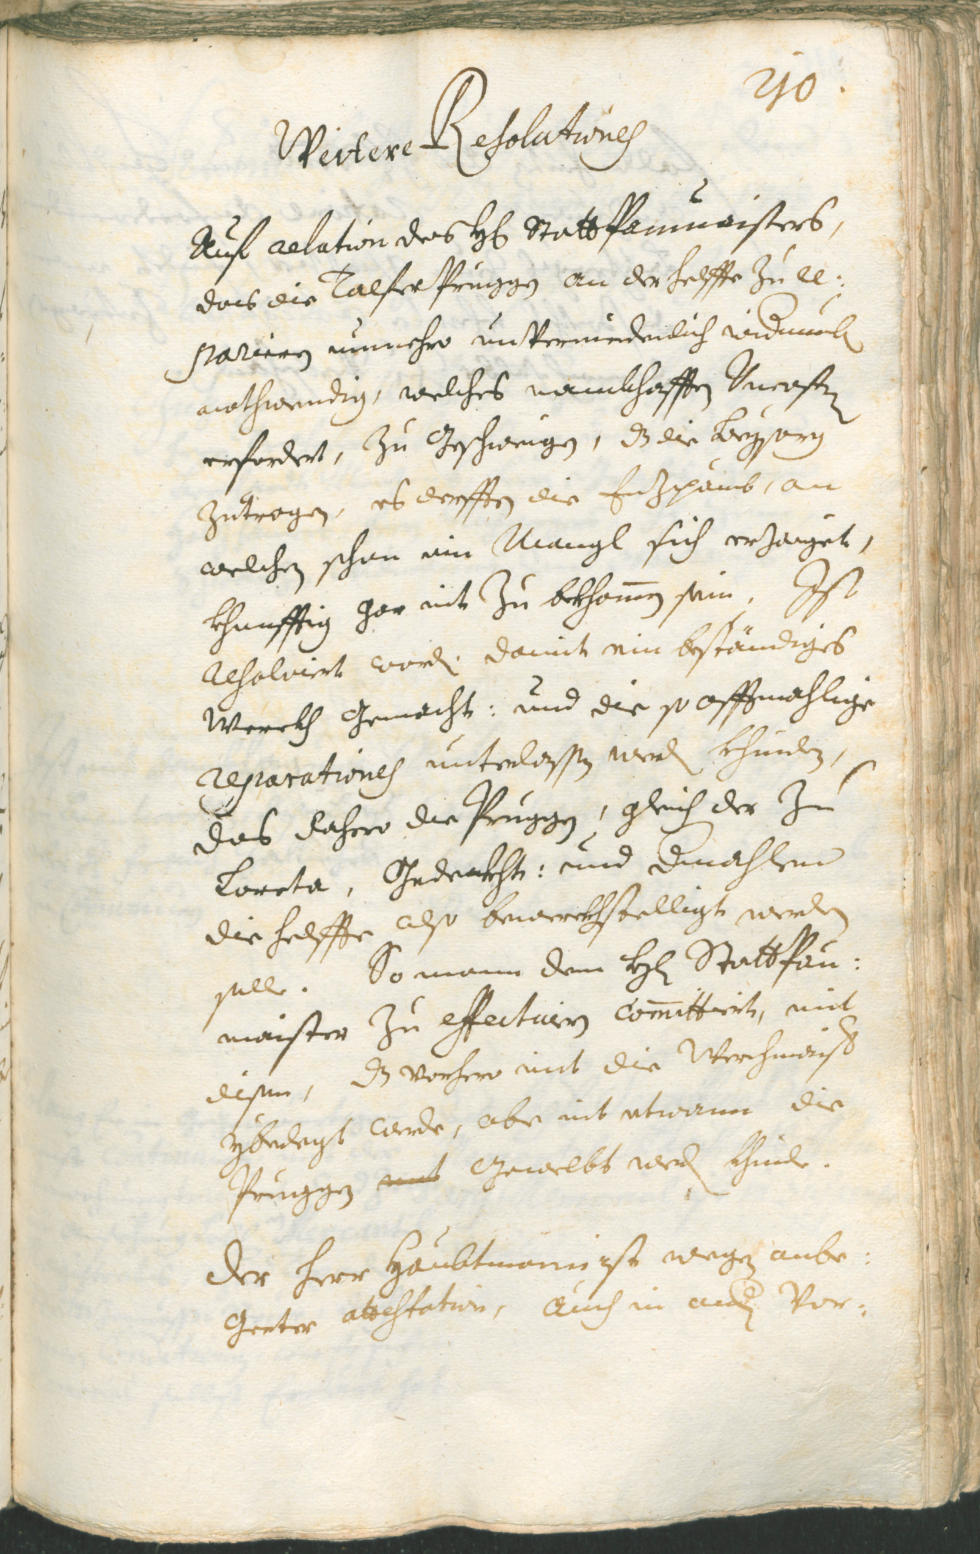 210.
Weitere Resolationes
Auf relation des H: Stattpaumaisters,
das die Talfer Pruggen an der helffte zu re:
parieren nunmehro unvermeidenlich widerumb
nothwendig, welches namhafften Uncosten
erfordert, zu geschweigen, dz die beysorg
zutragen, es derfften die Enzpämb, an
welchen schon ein Mangl sich erzaiget,
khonfftig gar nit zu bekhommen sein. Ist
resolviert worden damit ein beständiges
Werckh gemacht: und die so offtmahlige
reparationes unterlassen werden khinden,
das dahero die Pruggen, gleich der zu
Loreta, gedeckht: und dermahlen
die helffte also bewerckhstelligt werden
solle. So mann dem H: Stattpau:
maister zu effectuiern committiert, mit
disem, dz vorhero mit die Werchmaister
yberlegt werde, obe nit etwann die
Pruggen gewelbt werden khinde.
Der Herr Haubtmann ist wegen anbe:
gerter attestation, auch in andern Vor: